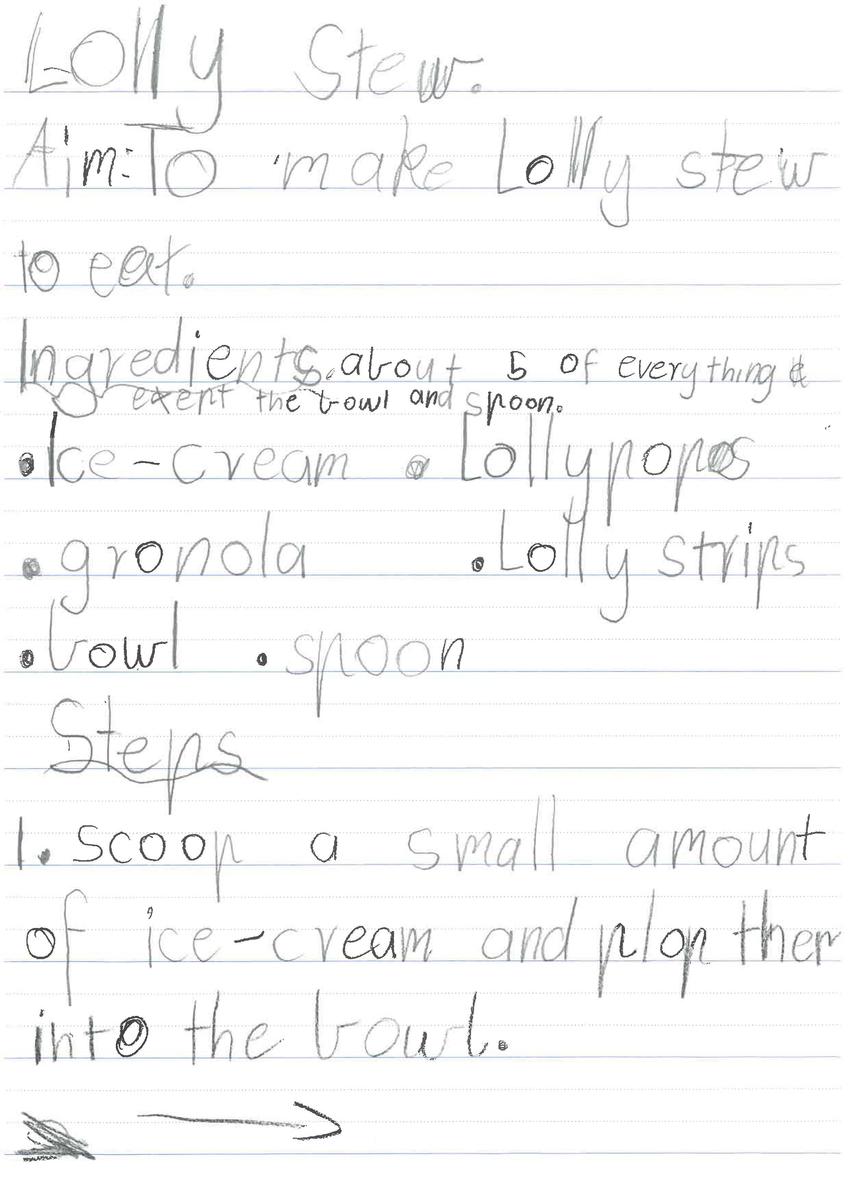 Lolly Stew.
Aim: To make Lolly stew
to eat.
Ingredients. about 5 of everything &
exept the bowl and spoon.
• Ice-cream • Lollypopos
• gronola • Lolly strips
• bowl • spoon
Steps
1. scoop a small amount
of ice-cream and plop them
into the bowl.